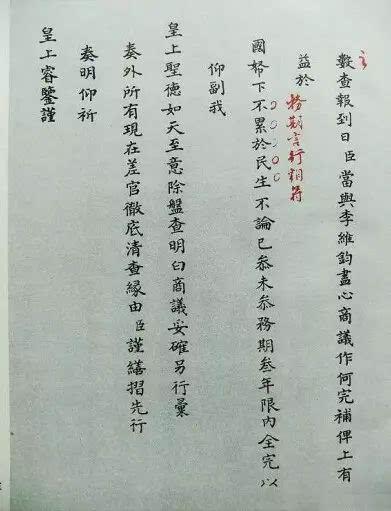 數查報到日臣當與李維鈞盡心商議作何完補俾上有
益於
務期言行相符
國帑下不累於民生不論已叅未叅務期叁年限內全完以
仰副我
皇上聖德如天至意除盤查明白商議妥確另行彙
奏外所有現在差官徹底清查緣由臣謹繕摺先行
奏明仰祈
皇上睿鑒謹